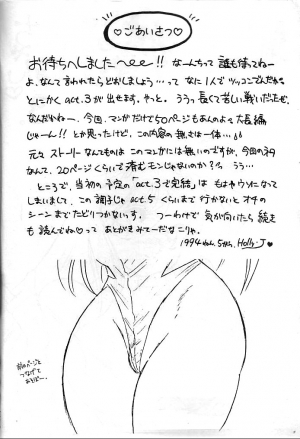 ♡ごあいさつ♡
お待たへしましたへェe!! なーんちって誰も待ってねーよ
よ、なんて言われたらどおしましょう…って なに1人でツッコンでんだか。
とにかく act.3が出せます。やっと。ううっ長くて苦しい戦いだったぜ。
なんだかねー、今回、マンガだけで50ページもあんのよォ大長編
じゃーん!! とか思ったけど、この内容の無さは一体…
元々 ストーリーなんてものは このマンガには無いのですが、今回のネタ
なんて、20ページくらいで済むモンじゃないのか?っ うぅ…
ところで、当初の予定の「act.3で完結」は もはやうそになって
しまいまして、この調子じゃ act.5 くらいまで行かないと オチの
シーンまでたどりつかないっス。つーわけで 気が向いたら続き
も 読んでね♡って あとがきみてーだな こりゃ。
1994 Holly-J ♥
前のページと
つなげて